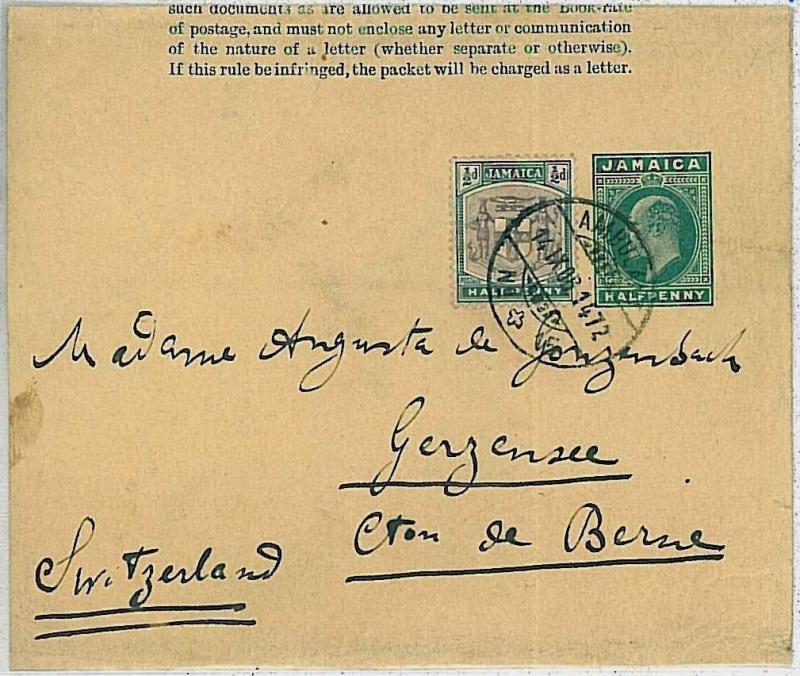 such documents as are allowed to be sent at the Book-rate
of postage, and must not enclose any letter or communication
of the nature of a letter (whether separate or otherwise).
If this rule be infringed, the packet will be charged as a letter.
½d JAMAICA ½d
HALFPENNY
JAMAICA
HALFPENNY
Madame Augusta de Gonzenbach
Gerzensee
Cton de Berne
Switzerland